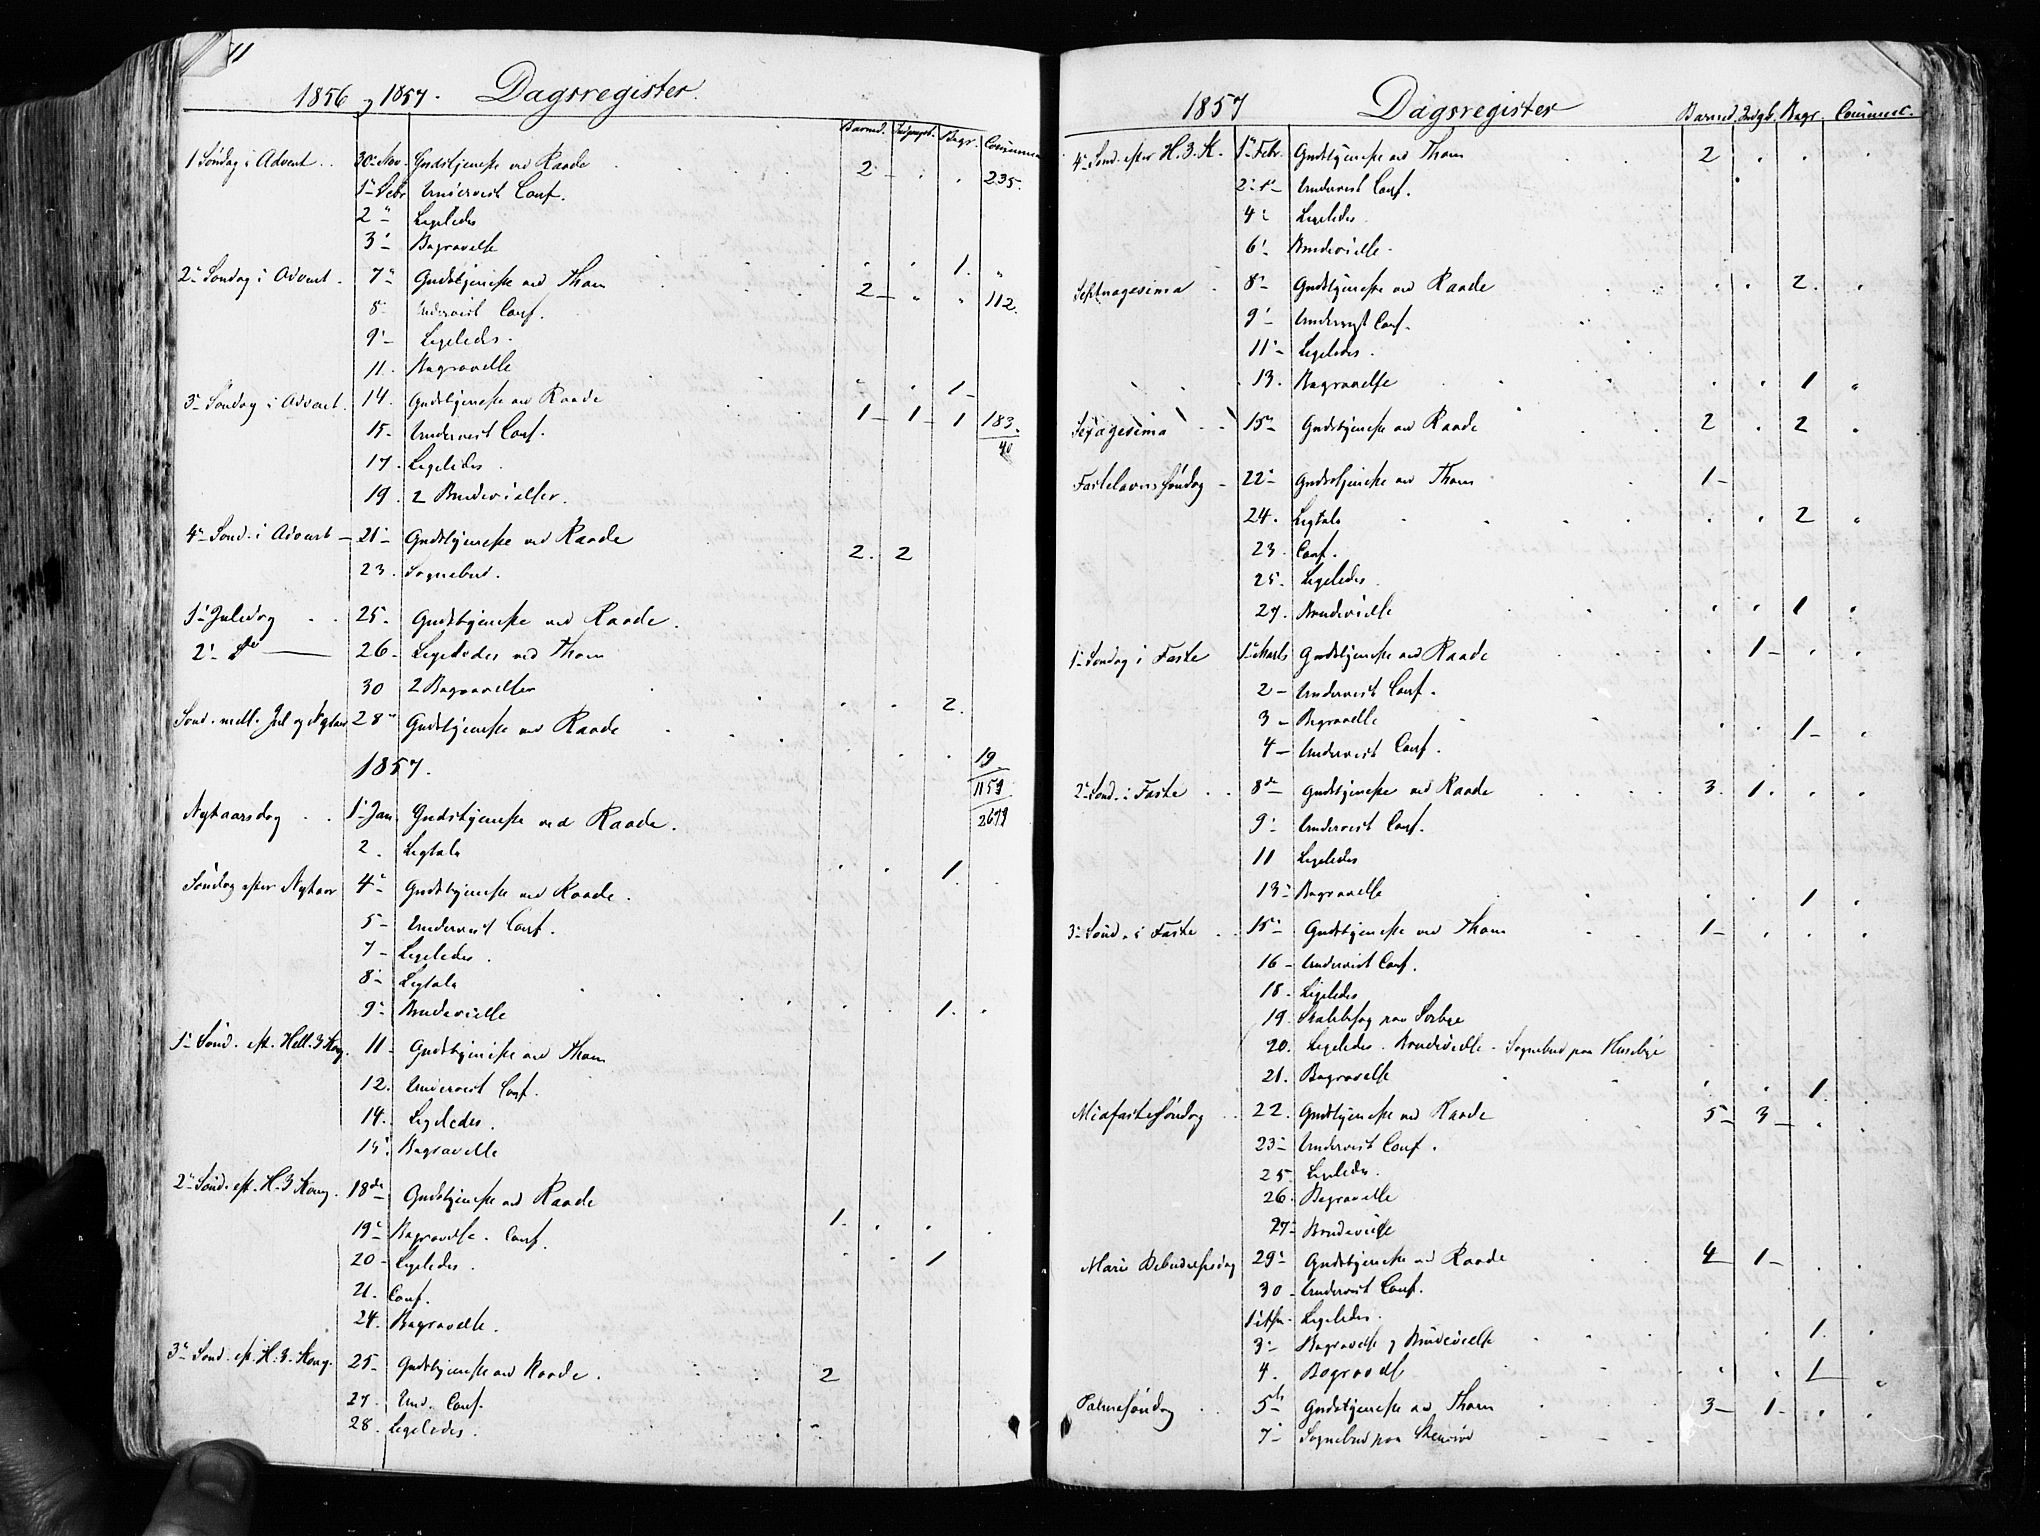 11
1856 og 1857. Dagsregister.
Barned. Indgangsk. Begr. Commun
1 Søndag i Advent . . 30- Nov. Gudstjeneste ved Raade 2 - . . 235.
1- Decbr Underviist Conf.
2 - Ligeledes
3- Begravelse . . 1. "
2- Søndag i Advent . 7- Gudstjeneste ved Thom 2 - " " 112.
8 Underviist Conf.
9- Ligeledes.
11. Begravelse . . 1 -
3- Søndag i Advent. 14. Gudstjeneste ved Raade 1 - 1 - 1 183.
15- Underviist Conf. 40
17. Ligeledes
19. 2 Brudevielser.
4- Sønd. i Advent - 21- Gudstjeneste ved Raade 2. 2
23. Sognebud.
1- Juledag . . 25- Gudstjeneste ved Raade.
2- Do 26- Ligeledes ved Thom
30 2 Begravelser . . 2.
Sønd. mell. Jul og Nytaar 28- Gudstjeneste ved Raade . . 19
1857. 1159
Nytaarsdag . . 1- Jan Gudstjeneste ved Raade. 2699
2. Ligtale . . 1.
Søndag efter Nytaar 4- Gudstjeneste ved Raade.
5- Underviist Conf.
7- Ligeledes.
8- Ligtale
9- Brudevielse . . 1. .
1- Sønd. eft. Hell. 3 Kong. 11- Gudstjeneste ved Thom
12. Underviist Conf.
14. Ligeledes.
15. Begravelse
2- Sønd. eft. H. 3 Kong. 18de Gudstjeneste ved Raade 1. . . .
19- Begravelse. Conf. . . 1
20- Ligeledes.
21. Conf.
24. Begravelse.
3- Sønd. eft. H. 3. Kong. 25- Gudstjeneste ved Raade. 2
27. Und. Conf.
28. Ligeledes.
1857 Dagsregister
Barned. Indgk. Begr. Communic.
4- Sønd. efter H. 3. K. 1- Febr. Gudstjeneste ved Thom 2 . . .
2- Underviist Conf.
4- Ligeledes
6- Brudevielse.
Septuagesima 8- Gudstjeneste ved Raade . . 2. .
9- Conf.
11- Ligeledes.
13. Begravelse . . 1 .
Sexagesima 15- Gudstjeneste ved Raade 2 . 2 .
Fastelavns Søndag - 22- Gudstjeneste ved Thom 1 -
24. Ligtale . . 2 .
23. Conf.
25. Ligeledes
27. Brudevielse . . 1 .
1- Søndag i Faste 1- Marts Gudstjeneste ved Raade . 1 - . .
2- Underviist Conf.
3- Begravelse . . 1 - .
4- Underviist Conf.
2- Sønd. i Faste . . 8de Gudstjeneste ved Raade 3. 1. . .
9- Underviist Conf.
11 Ligeledes
13- Begravelse . . 1 .
3- Sønd. i Faste . . 15- Gudstjeneste ved Thom 1 - . . .
16- Underviist Conf.
18. Ligeledes
19. paa Sorbye
20. Ligeledes. Brudevielse. Sognebud paa Huseby
21. Begravelse . . 1. .
Midfastesøndag . . 22. Gudstjeneste ved Raade 5 - 3 - . .
23- Underviist Conf.
25. Ligeledes.
26. Begravelse
27- Brudevielse
Mariæ Bebudelsesdag 29- Gudstjeneste ved Raade 4 1 - . .
30- Underviist Conf.
1 Apr. Ligeledes.
3- Begravelse og Brudevielse . . 1. .
4. Begravelse . . 1 .
Palmesøndag . . 5te Gudstjeneste ved Thom 3 - 1 - . .
7- Sognebud paa